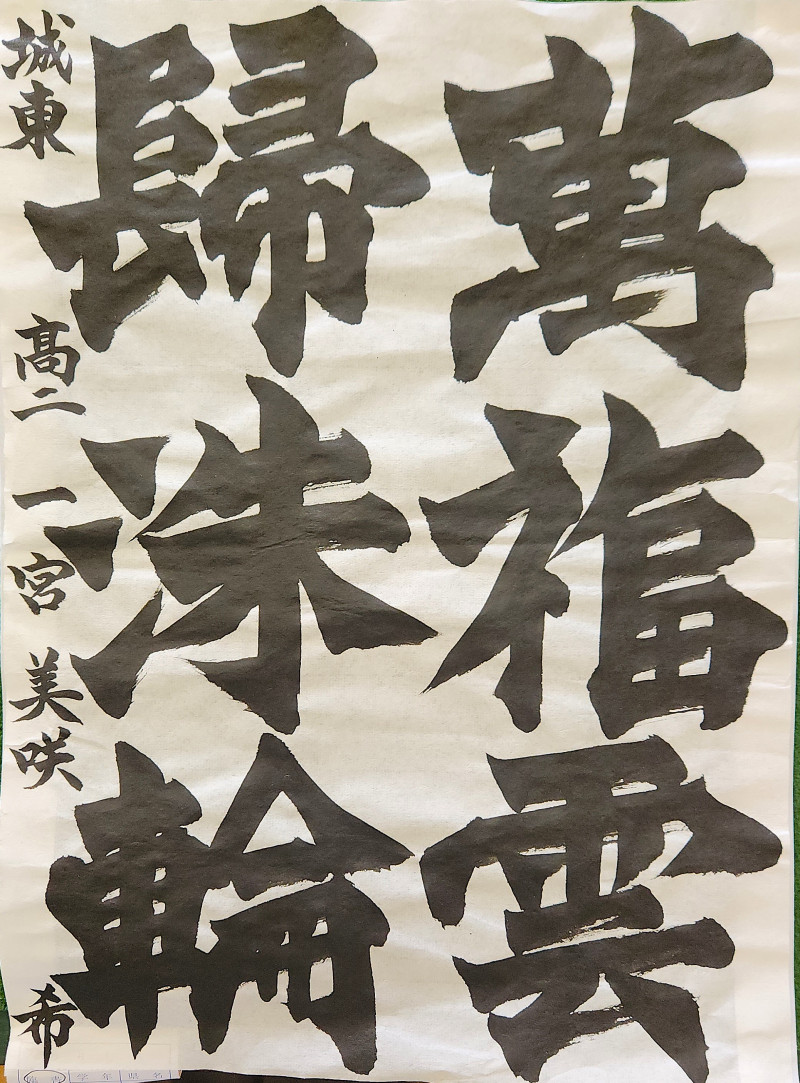 萬福雲
歸洙輪
城東 高二 一宮美咲 希